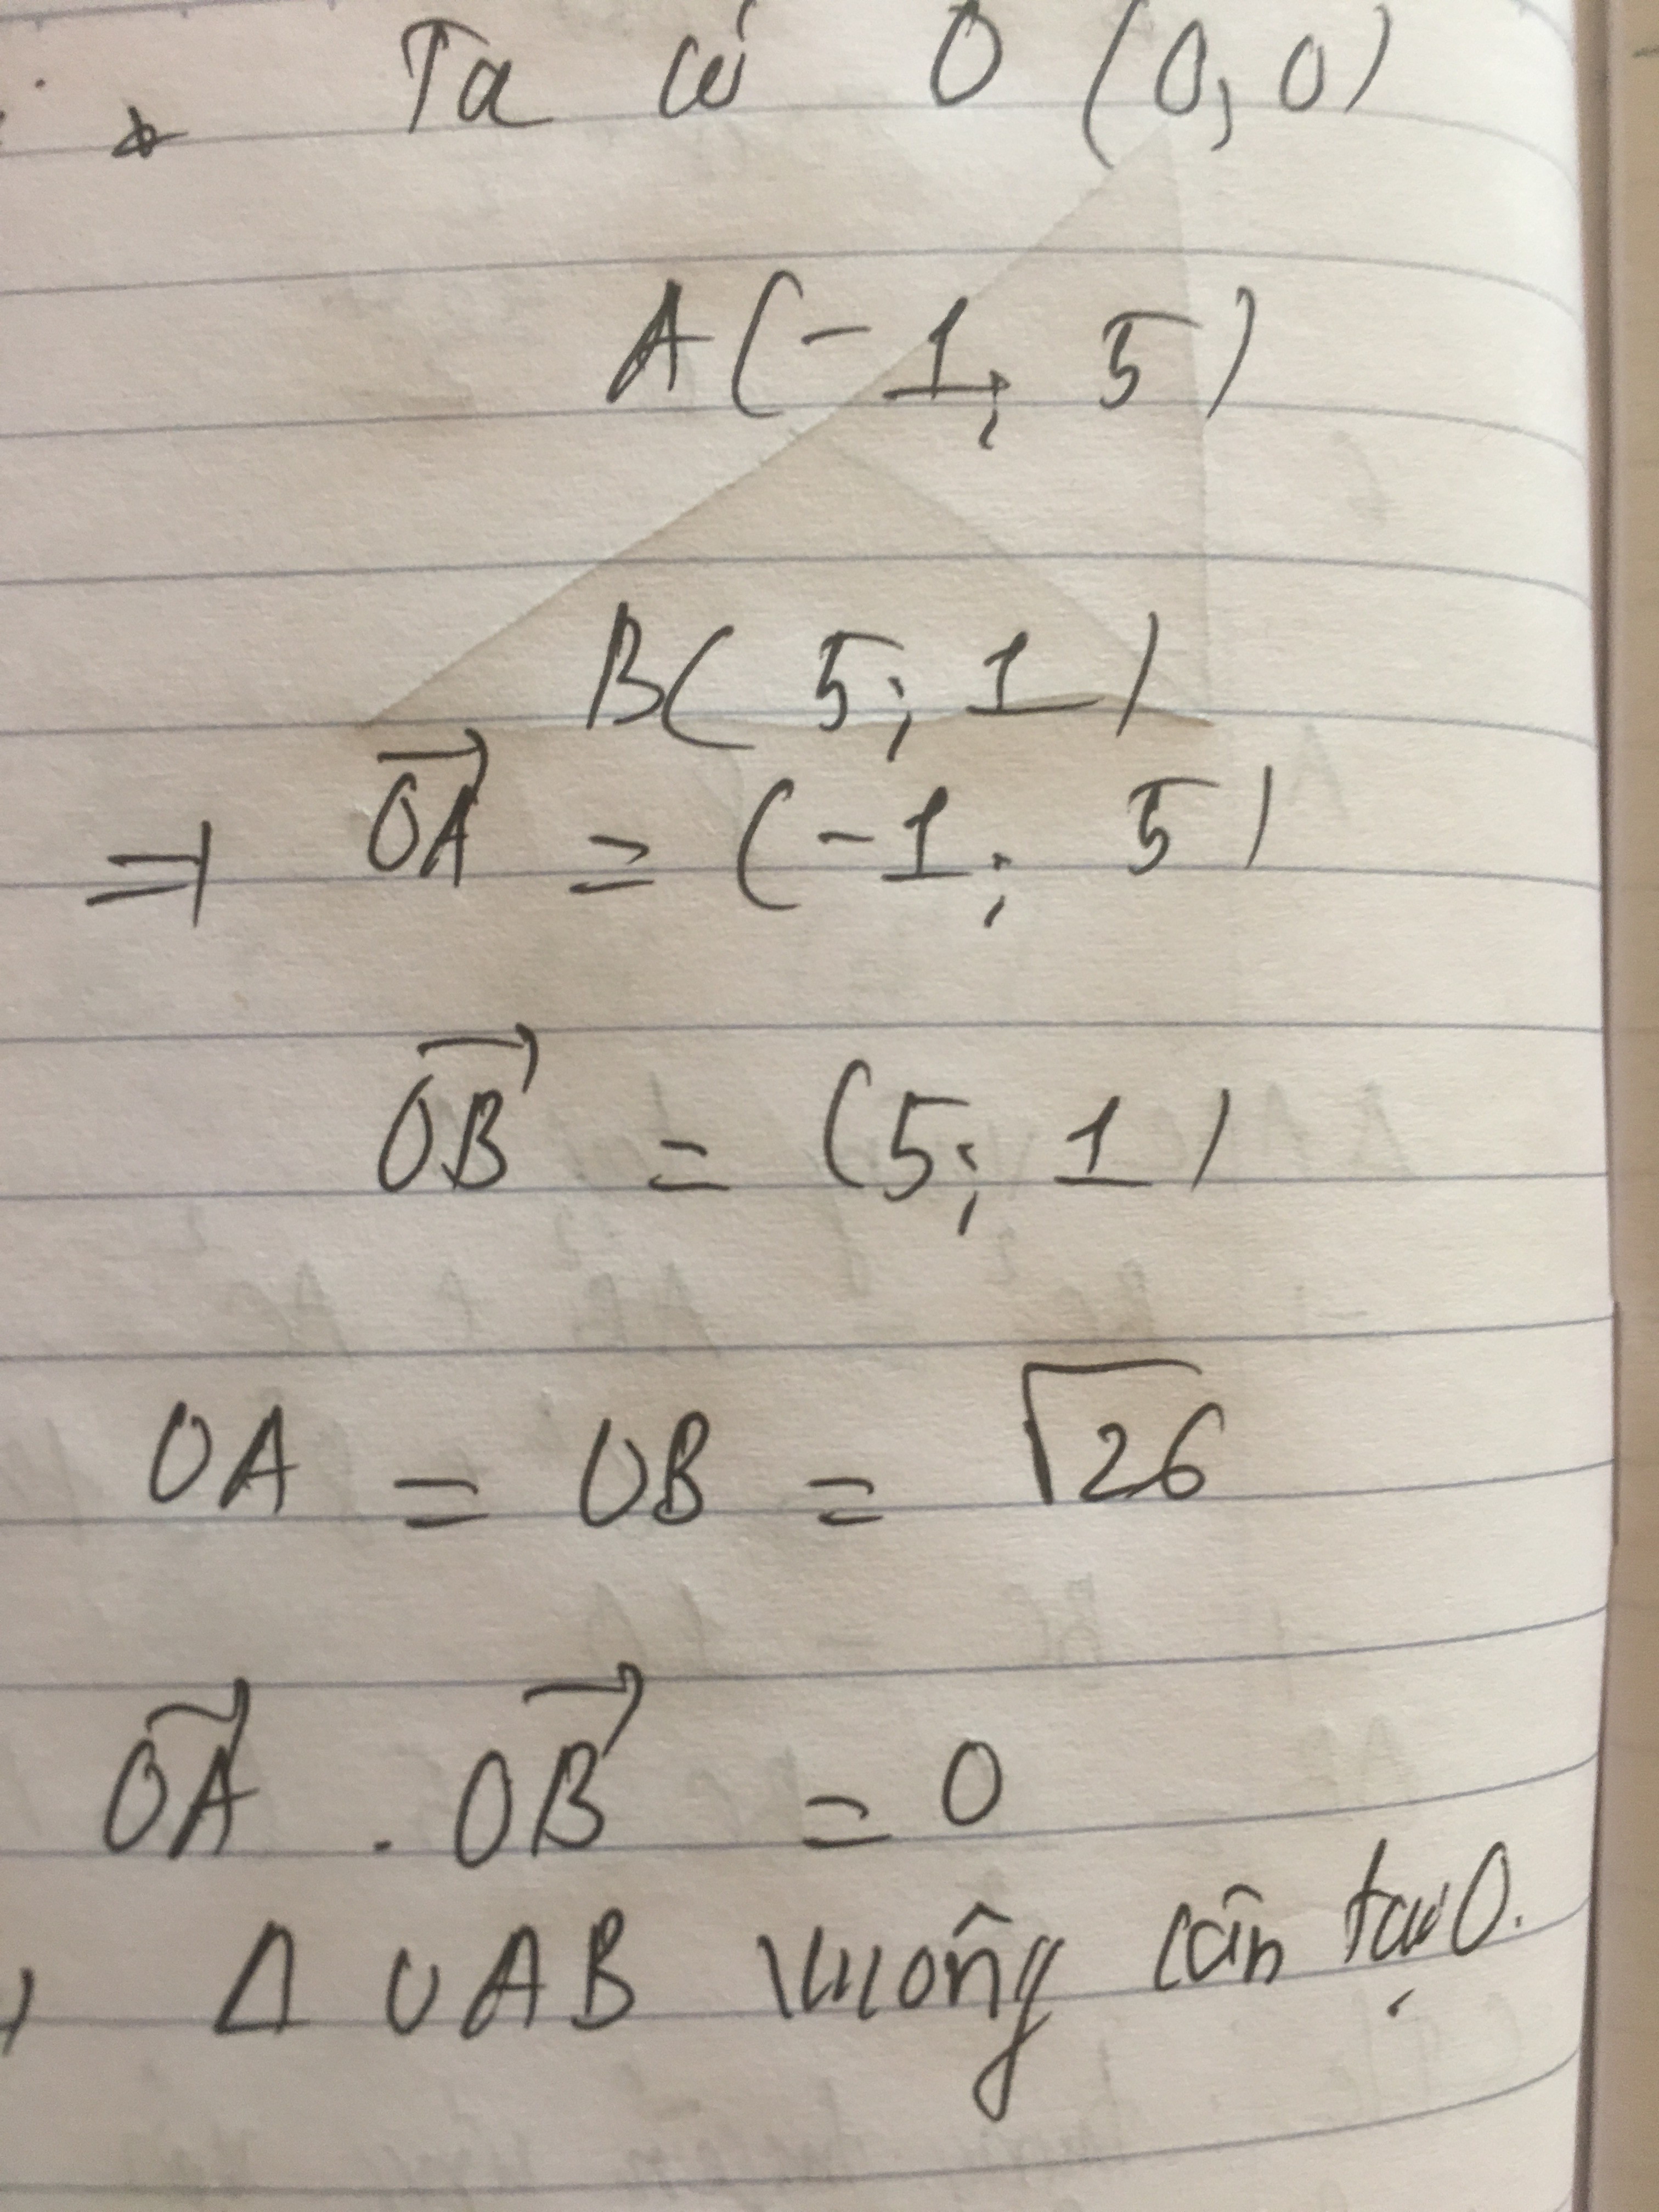 * Ta có O (0, 0)
A(-1; 5)
B( 5; 1)
=> OA = (-1; 5)
OB = (5; 1)
OA = OB = √26
OA . OB = 0
Δ OAB vuông cân tại O.